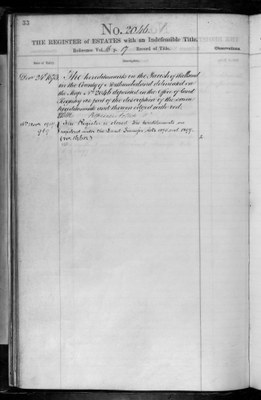 32
No. 2046
THE REGISTER of ESTATES with an Indefeasible Title.
Reference Vol. 6 p. 17 Record of Title.
Date of Entry.
Description.
Observations.
The hereditaments in the Parish of
in the County of Northumberland delineated on
the Map No. 2046 deposited in the Office of Land
Registry as part of the description of the same
hereditaments and thereon edged with red.
This Register is closed. The hereditaments are
registered under the Land Transfer Acts 1875 and 1897.